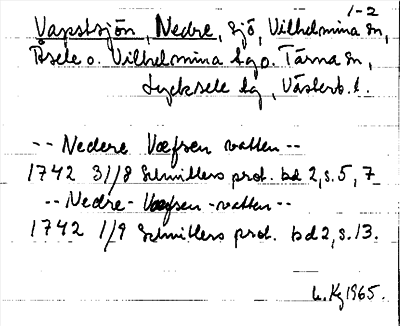 1-2
Vapstsjön, Nedre, sjö, Vilhelmina sn,
Åsele o. Vilhelmina tg o. Tärna sn,
Lycksele tg, Västerb. l.
-- Nedere Væfsen vatten --
1742 31/8 Schnitlers prot. bd 2, s. 5, 7
-- Nedre - Væfsen - vatten --
1742 1/9 Schnitlers prot. bd 2, s. 13.
1965.